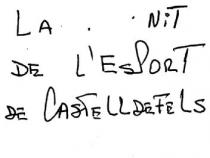 LA . . NIT
DE L'ESPORT
DE CASTELLDEFELS